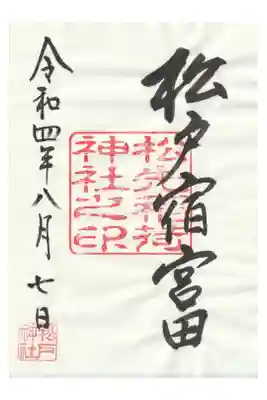 松戸宿宮田
神社之印
令和四年八月七日
松戸神社